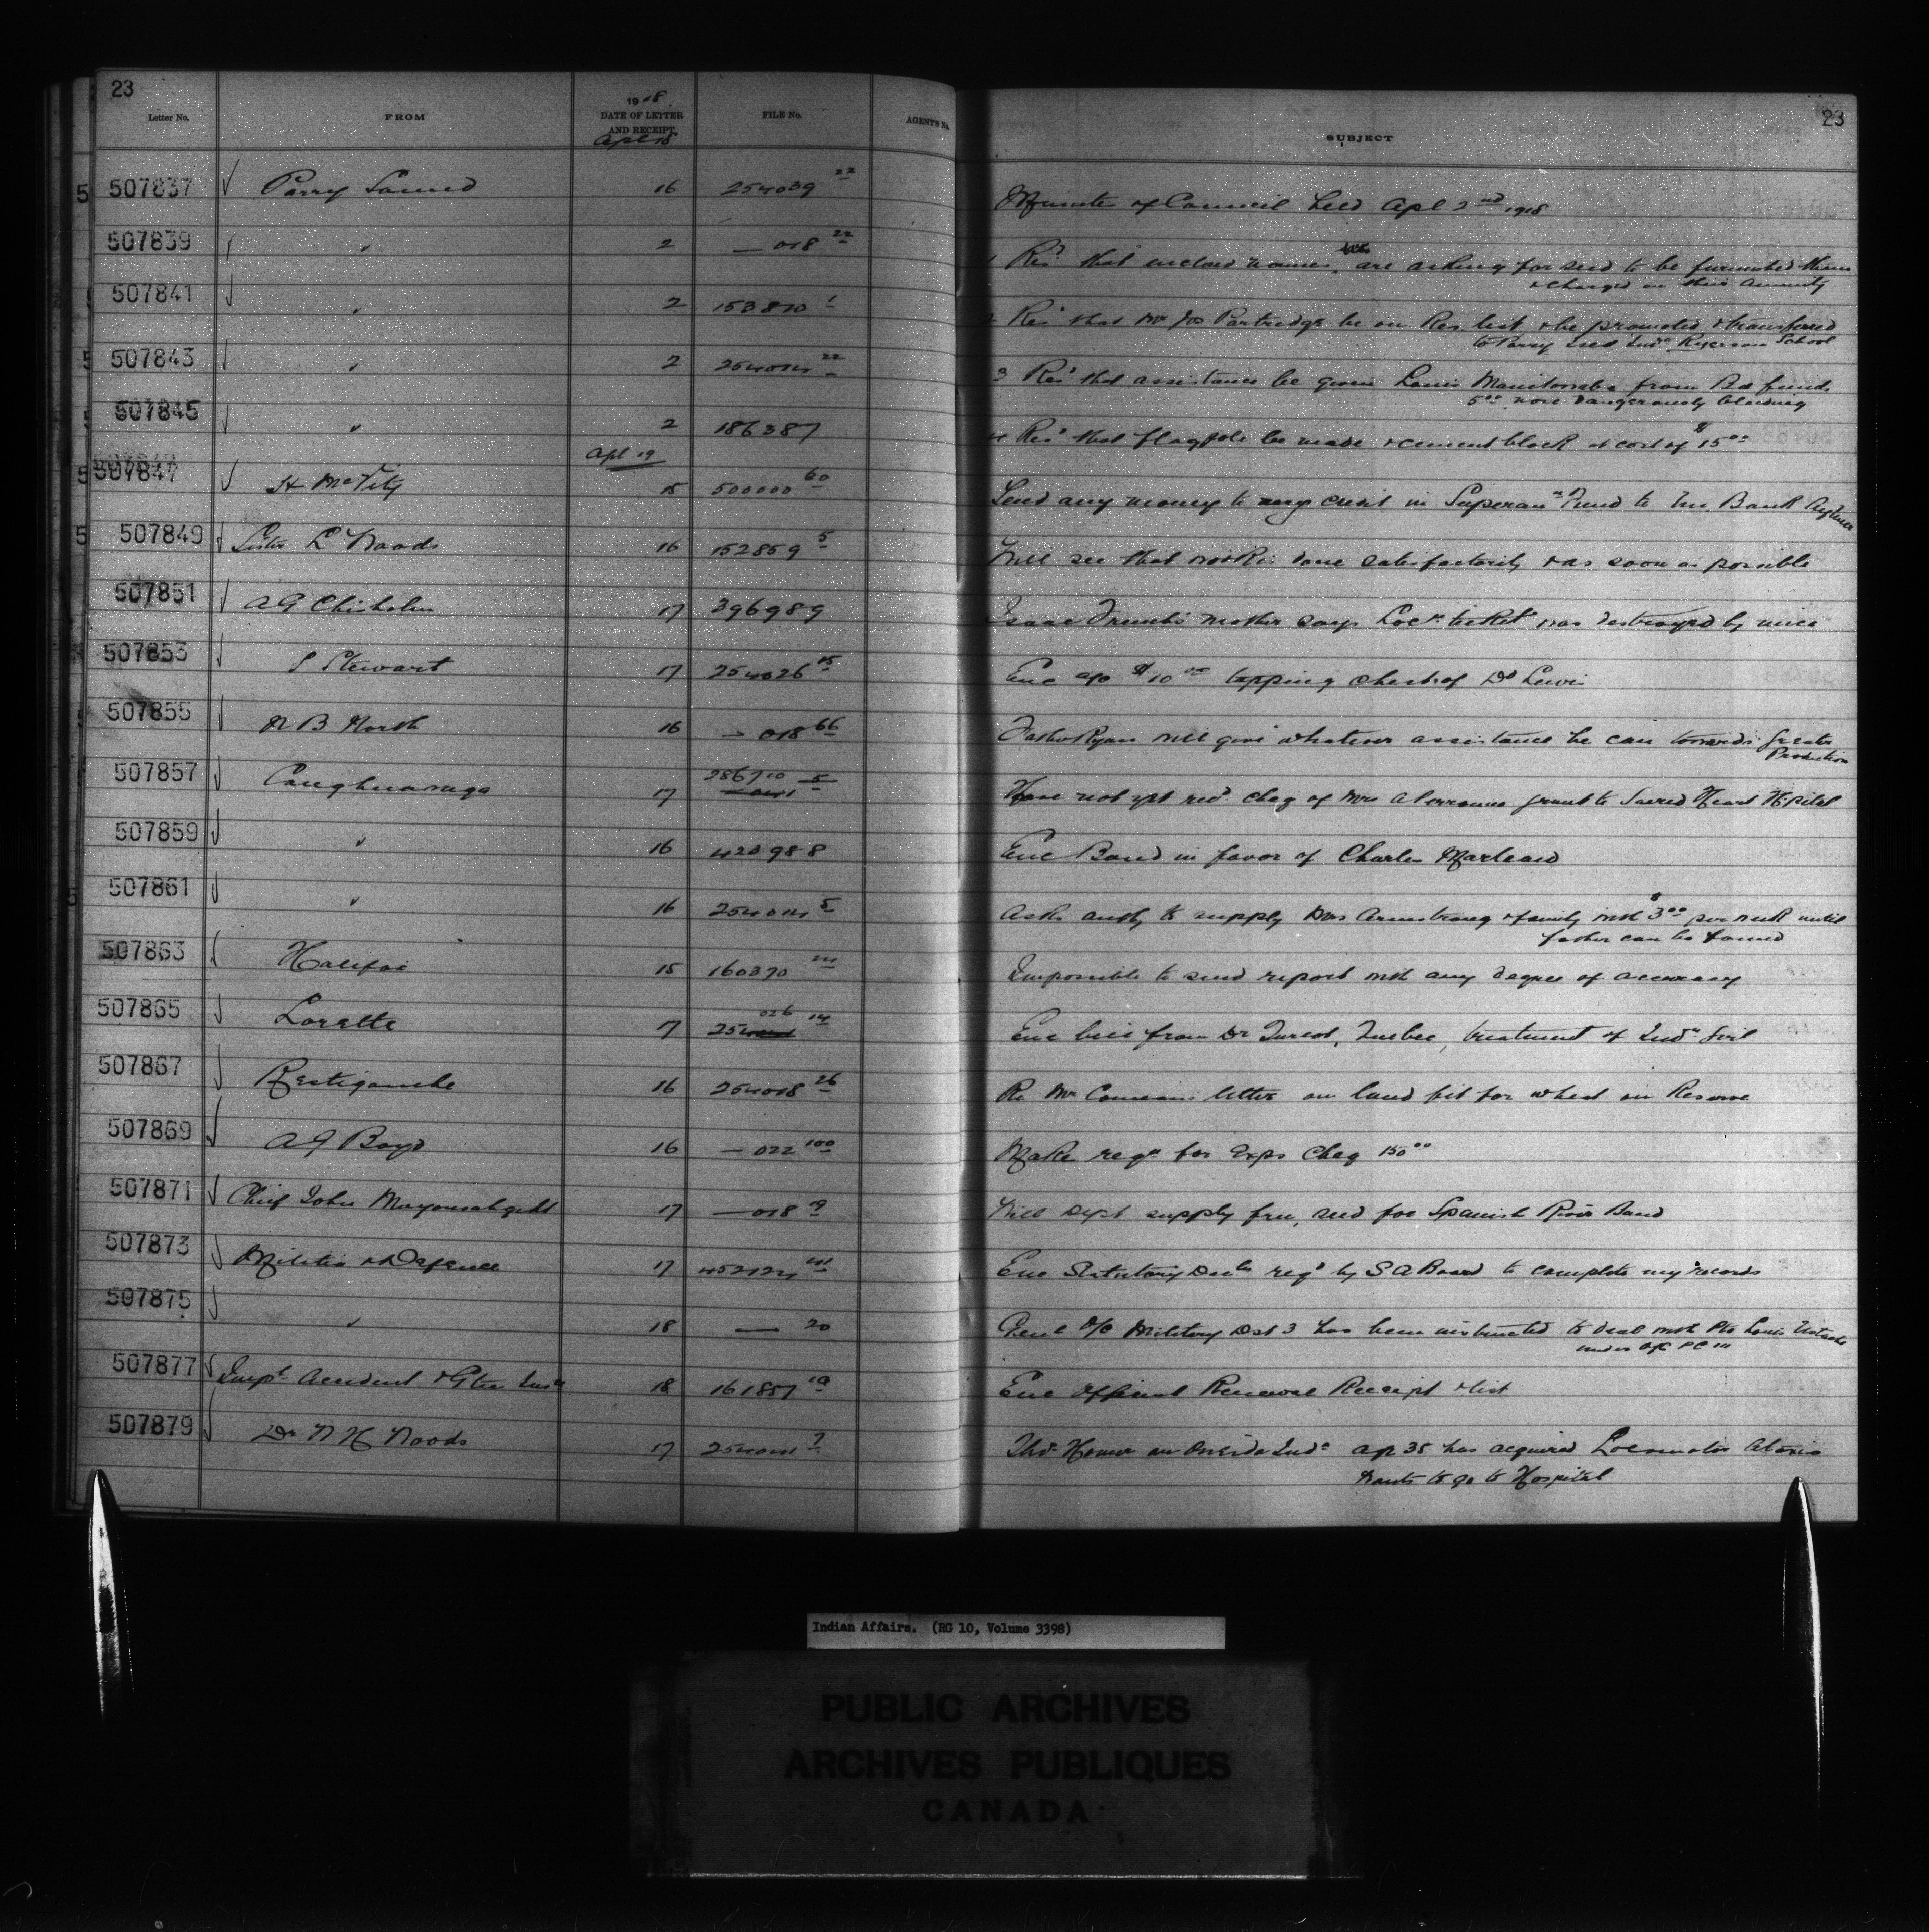 23
Letter No. FROM 1918 DATE OF LETTER AND RECEIPT FILE No. AGENT'S No. SUBJECT 23
Apl 18
507837 Parry Sound 16 254039 22 Minutes of Council held Apl 2nd 1918
507839 " 2 — 018 22 1 Resn that enclosed names are asking for seed to be furnished them
& charged on their annuity
507841 " 2 153810 1 2 Resn that Mr Jos Partridge be on Res. list & be promoted & transferred
to Parry Isld Indn Ryerson School
507843 " 2 254014 22 3 Resn that assistance be given Louis from Bd funds
5 00 nose dangerously bleeding
507845 " 2 186387 4 Resn that flagpole be made & cement block at cost of $15 00
Apl 19
507847 H McVity 15 500000 60 Send any money to my credit in Superann Fund to Bank
507849 Sister L Woods 16 152859 5 Will see that work is done satisfactorily & as soon as possible
507851 A G Chisholm 17 396989 Isaac mother says Locn ticket was destroyed by mice
507853 S Stewart 17 254026 15 Enc a/c $10 00 tapping chest of D Lewis
507855 N B North 16 — 018 66 Father Ryan will give whatever assistance he can towards greater
Production
507857 Caughnawaga 17 286710 5 Have not yet recd cheq of Mrs grant to Sacred Heart Hospital
507859 " 16 420988 Enc Bond in favor of Charles
507861 " 16 254014 5 Asks authy to supply Mrs Armstrong & family with $3 00 per week until
father can be found
507863 Halifax 15 160370 Impossible to send report with any degree of accuracy
507865 Lorette 17 254 026 14 Enc bill from Dr Quebec, treatment of Indn girl
507867 Restigouche 16 254018 26 Re Mr letter on land fit for wheat on Reserve
507869 A G Boyd 16 — 022 100 Make reqn for Exps Cheq 150 00
507871 Chief John 17 — 018 9 Will Dept supply free seed for Spanish River Band
507873 Militia & Defence 17 452124 Enc Statutory Decln reqd by S A Board to complete my records
507875 " 18 — 20 Genl O/C Military Dist 3 has been instructed to deal with Pte Louis
under O/C P C 111
507877 Impl Accident & Gtee Insn 18 161857 10 Enc Official Renewal Receipt & list
507879 Dr W H Woods 17 254014 7 Thos Homer an Oneida Indn age 35 has acquired Locomotor Ataxia
wants to go to Hospital
Indian Affairs. (RG 10, Volume 3398)
PUBLIC ARCHIVES
ARCHIVES PUBLIQUES
CANADA